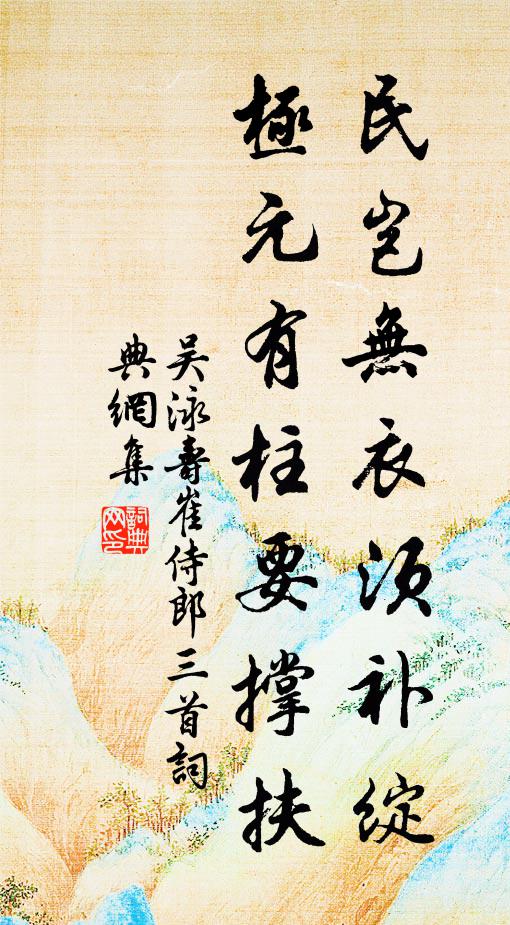 民岂無衣须补绽
極元有柱要撑扶
吴泳壽崔侍郎三首詞
典網集
詞典网印